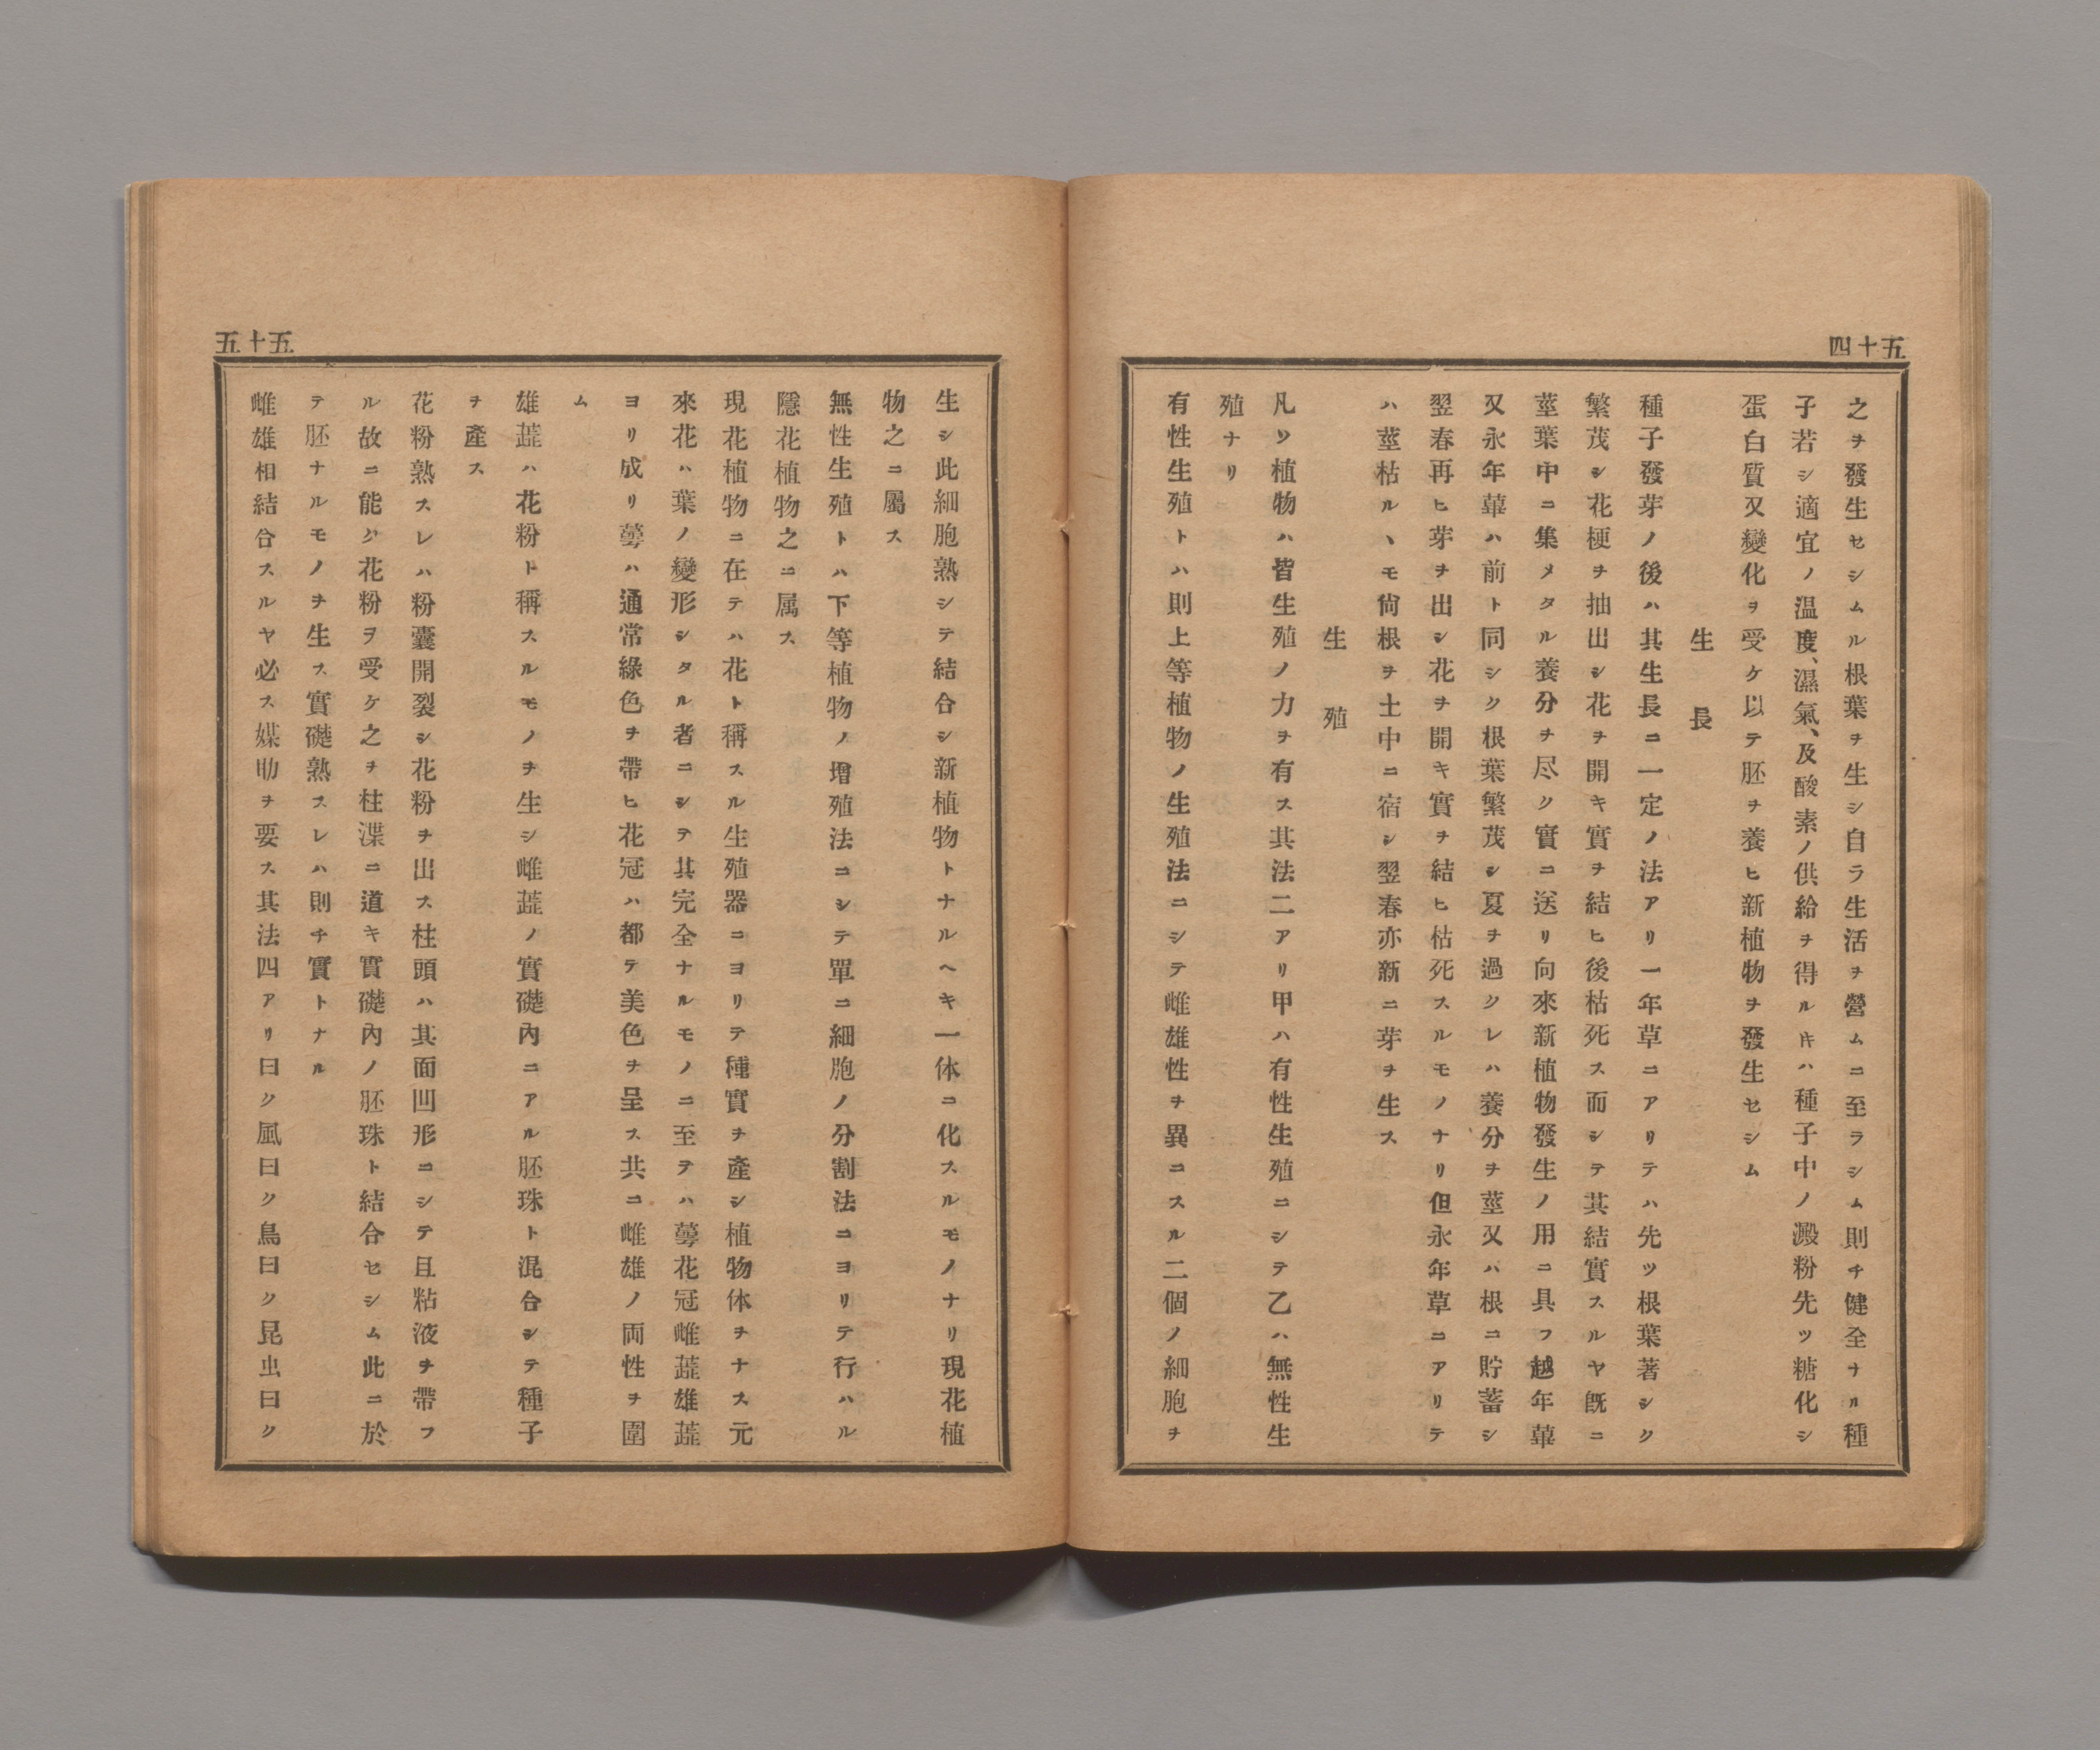 五十四
之ヲ發生セシムル根葉ヲ生シ自ラ生活ヲ營ムニ至ラシム則チ健全ナル種
子若シ適宜ノ温度、濕氣、及酸素ノ供給ヲ得ルキハ種子中ノ澱粉先ッ糖化シ
蛋白質又變化ヲ受ケ以テ胚ヲ養ヒ新植物ヲ發生セシム
生長
種子發芽ノ後ハ其生長ニ一定ノ法アリ一年草ニアリテハ先ツ根葉著シク
繁茂シ花梗ヲ抽出シ花ヲ開キ實ヲ結ヒ後枯死ス而シテ其結實スルヤ既ニ
莖葉中ニ集メタル養分ヲ尽ク實ニ送リ向來新植物發生ノ用ニ具フ越年草
又永年草ハ前ト同シク根葉繁茂シ夏ヲ過クレハ養分ヲ莖又ハ根ニ貯蓄シ
翌春再ヒ芽ヲ出シ花ヲ開キ實ヲ結ヒ枯死スルモノナリ但永年草ニアリテ
ハ莖枯ルヽモ尙根ヲ土中ニ宿シ翌春亦新ニ芽ヲ生ス
生殖
凡ソ植物ハ皆生殖ノ力ヲ有ス其法二アリ甲ハ有性生殖ニシテ乙ハ無性生
殖ナリ
有性生殖トハ則上等植物ノ生殖法ニシテ雌雄性ヲ異ニスル二個ノ細胞ヲ
五十五
生シ此細胞熟シテ結合シ新植物トナルヘキ一体ニ化スルモノナリ現花植
物之ニ屬ス
無性生殖トハ下等植物ノ增殖法ニシテ單ニ細胞ノ分割法ニヨリテ行ハル
隱花植物之ニ属ス
現花植物ニ在テハ花ト稱スル生殖器ニヨリテ種實ヲ產シ植物体ヲナス元
來花ハ葉ノ變形シタル者ニシテ其完全ナルモノニ至テハ蕚花冠雌蕋雄蕋
ヨリ成リ蕚ハ通常綠色ヲ帶ヒ花冠ハ都テ美色ヲ呈ス共ニ雌雄ノ両性ヲ圍
ム
雄蕋ハ花粉ト稱スルモノヲ生シ雌蕋ノ實礎內ニアル胚珠ト混合シテ種子
ヲ產ス
花粉熟スレハ粉囊開裂シ花粉ヲ出ス柱頭ハ其面凹形ニシテ且粘液ヲ帶フ
ル故ニ能ク花粉ヲ受ケ之ヲ柱渫ニ道キ實礎內ノ胚珠ト結合セシム此ニ於
テ胚ナルモノヲ生ス實礎熟スレハ則チ實トナル
雌雄相結合スルヤ必ス媒助ヲ要ス其法四アリ曰ク風曰ク鳥曰ク昆虫曰ク